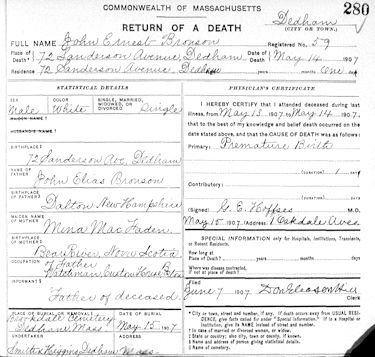 COMMONWEALTH OF MASSACHUSETTS
280
RETURN OF A DEATH
Dedham
(CITY OR TOWN.)
FULL NAME John Ernest Bronson Registered No. 59
Place of Death 72 Sanderson Avenue, Dedham Date of Death May 14 1907
Residence 72 Sanderson Avenue, Dedham Age years months one day
STATISTICAL DETAILS
SEX COLOR SINGLE, MARRIED, WIDOWED, OR DIVORCED
Male White Single
MAIDEN NAME
HUSBAND'S NAME
BIRTHPLACE
72 Sanderson Ave Dedham
NAME OF FATHER
John Elias Bronson
BIRTHPLACE OF FATHER
Dalton New Hampshire
MAIDEN NAME OF MOTHER
Mina MacFaden
BIRTHPLACE OF MOTHER
Bear River Nova Scotia
OCCUPATION of Father
Watchman Custom House
INFORMANT
Father of deceased
PLACE OF BURIAL OR REMOVAL DATE OF BURIAL
Brookdale Cemetery
Dedham Mass May 15 1907
UNDERTAKER
Higgins Dedham Mass
PHYSICIAN'S CERTIFICATE
I HEREBY CERTIFY that I attended deceased during last
illness, from May 13 1907 to May 14 1907,
that to the best of my knowledge and belief death occurred on the
date stated above, and that the CAUSE OF DEATH was as follows:
Primary: Premature Birth
(DURATION) 1 day
Contributory:
(DURATION)
(Signed) G. E. Hoffses M.D.
May 15 1907 (Address) Oakdale Ave
SPECIAL INFORMATION only for Hospitals, Institutions, Transients,
or Recent Residents.
How long at
Place of Death? years months days
Where was disease contracted,
if not at place of death?
Filed
June 7 1907
Clerk
* City or town, street and number, if any. If death occurs away from USUAL RESIDENCE,
give facts called for under "Special Information." If in a Hospital or
Institution, give its NAME instead of street and number.
† In case of married or divorced woman, or widow.
‡ State or country; also city, town or county, if known.
§ Name and address of person giving statistical details.